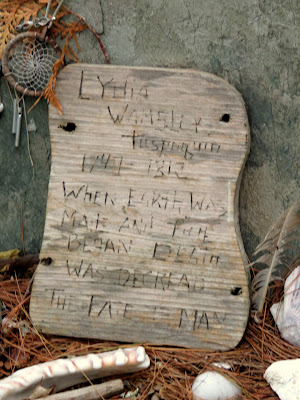 LYDIA
WAMSLEY
Tuspaquin
17 - 1812
WHEN EARTH WAS
MADE AND TIME
BEGAN DEATH
WAS DECREAD
THE FATE OF MAN